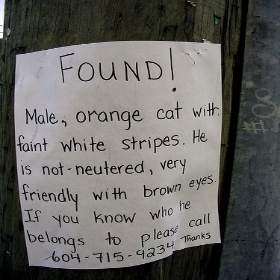 FOUND!
Male, orange cat with
faint white stripes. He
is not-neutered, very
friendly with brown eyes.
If you know who he
belongs to please call
604-715-9234 Thanks